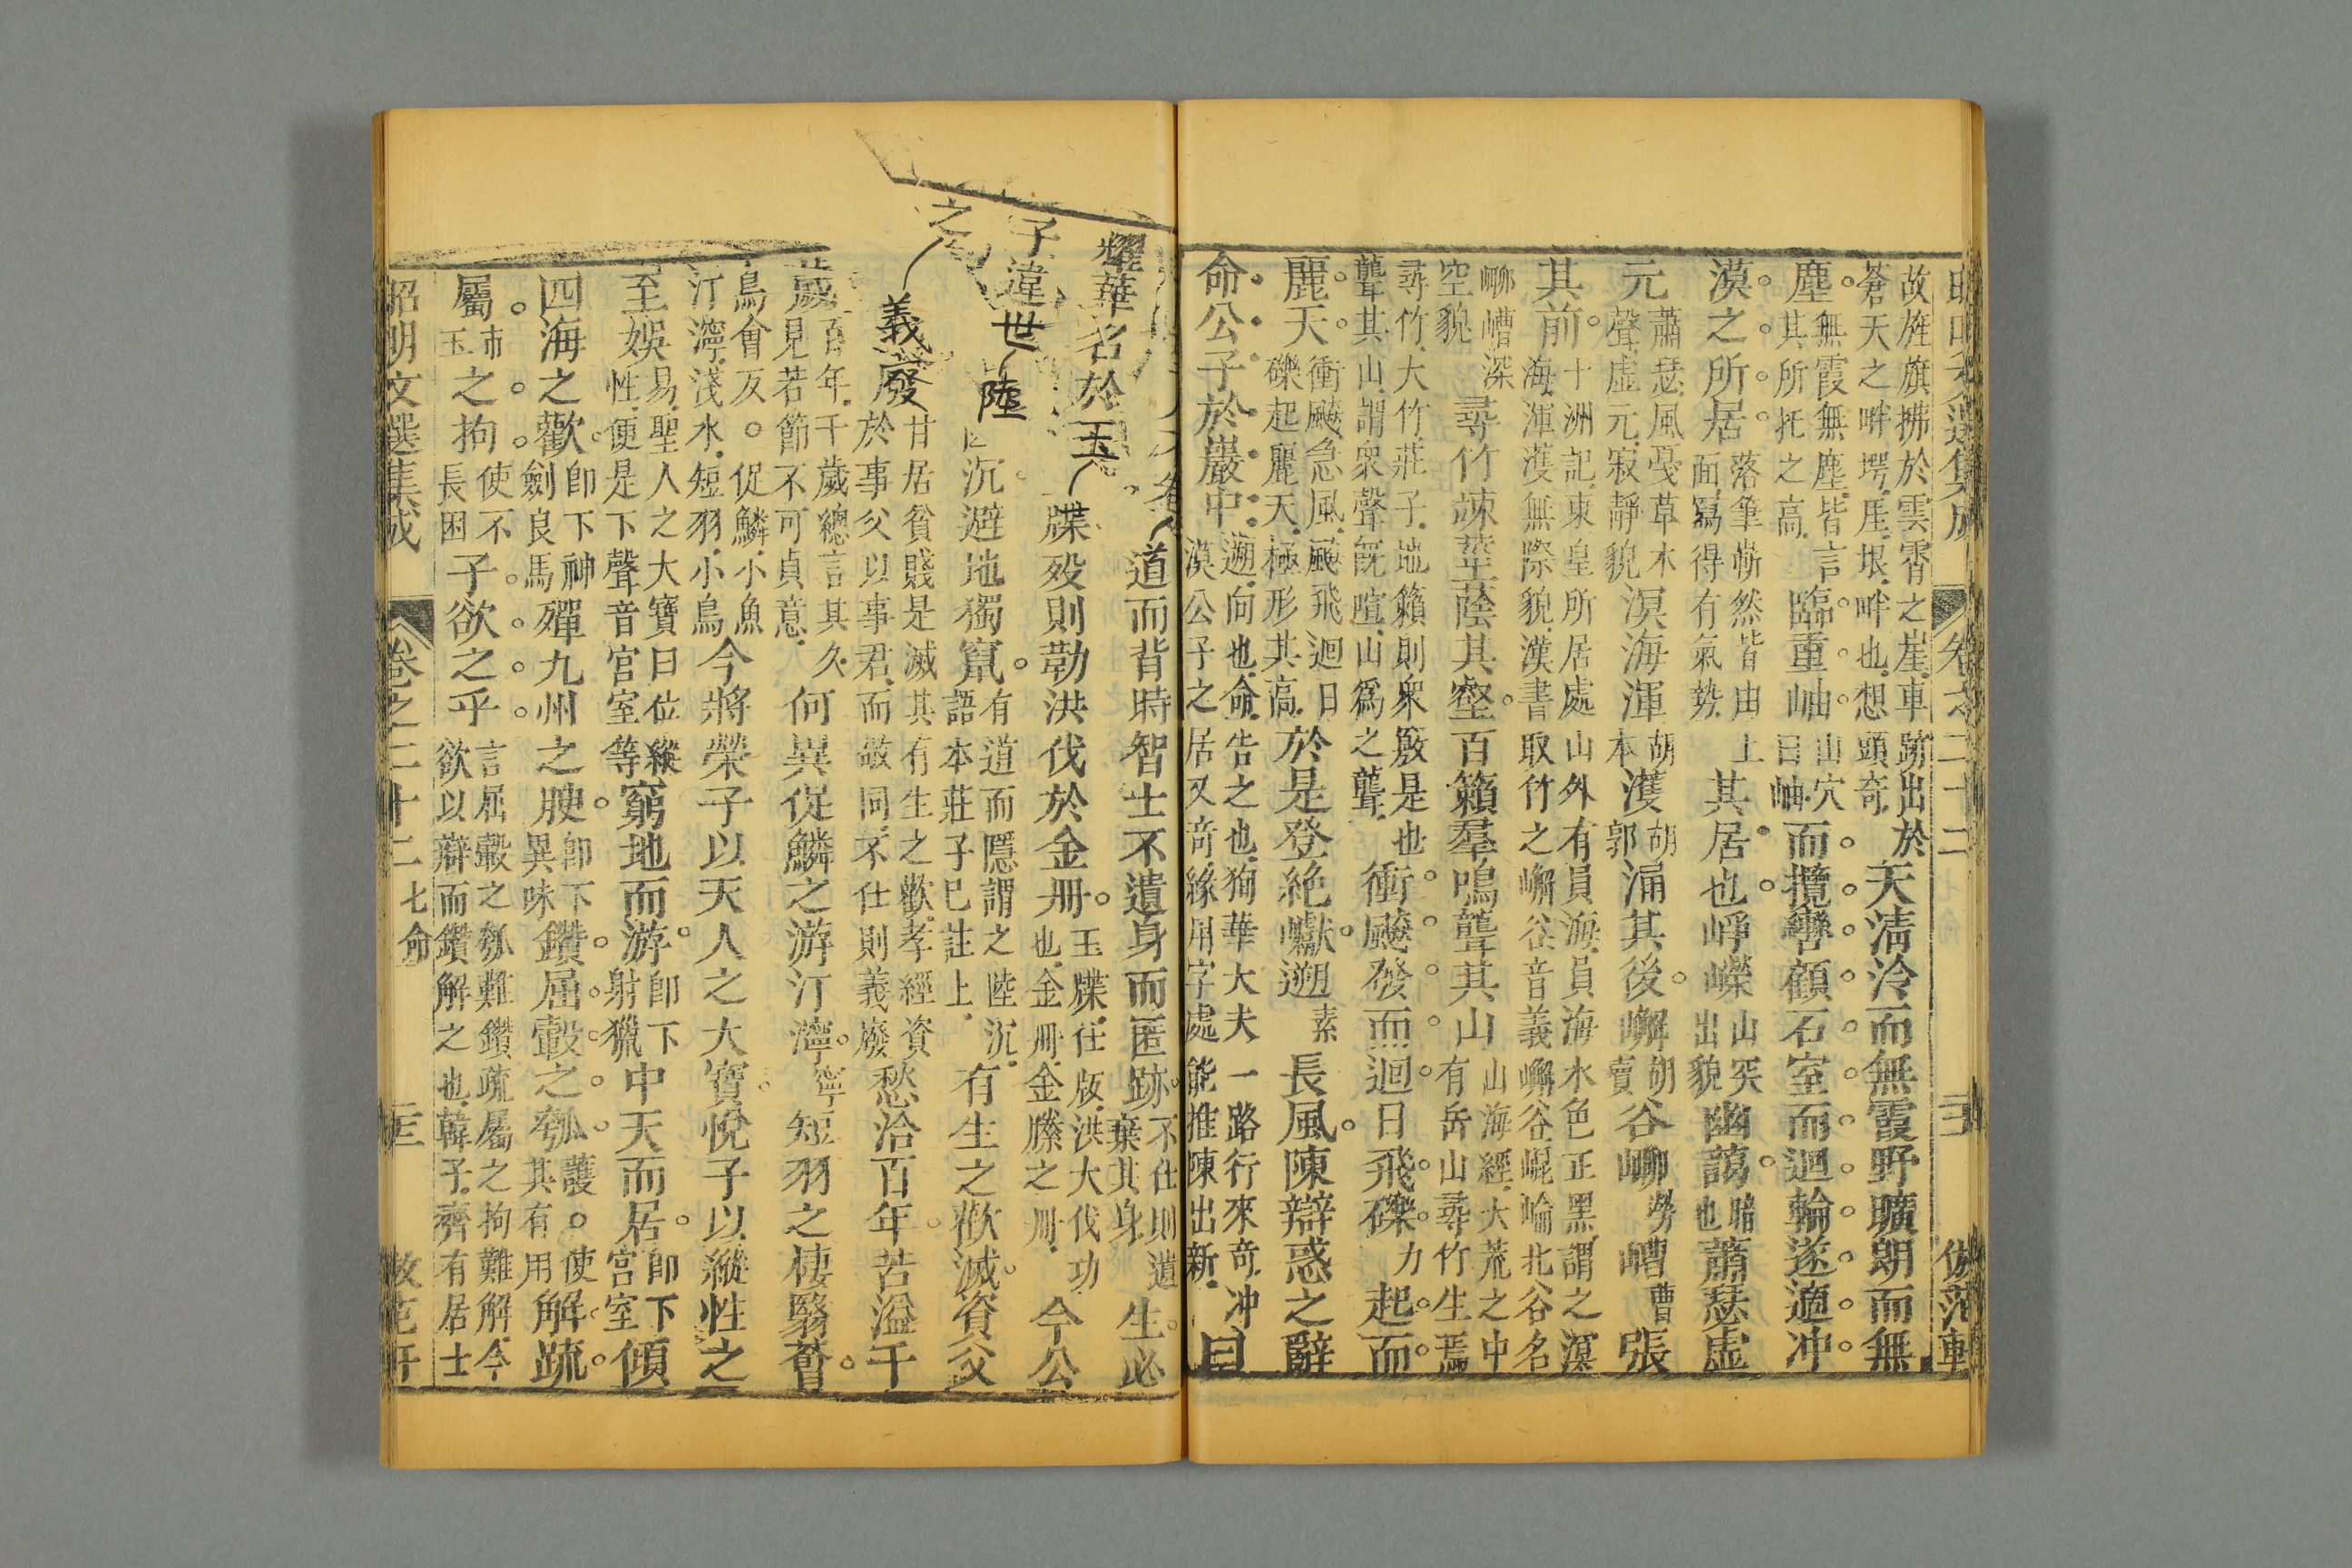 卷之二十二
故旌旗拂於雲霄之崖車跡出於
蒼天之畔堮厓垠畔也想頭奇
天清泠而無霞野曠朗而無
塵無霞無塵皆言其所托之高臨重岫山穴曰岫而攬轡顧石室而迴輪遂適冲
漠之所居落筆嶄然皆由面寫得有氣勢其居也崢嶸山突出貌幽藹暗也蕭瑟虛
元蕭瑟風戞草木聲虛元寂靜貌溟海渾胡本濩胡郭涌其後嶰胡賣谷㟹勞嶆曹張
其前十洲記東皇所居處山外有員海員海水色正黑謂之溟海渾濩無際貌漢書取竹之嶰谷音義嶰谷崐崘北谷名
㟹嶆深空貌尋竹竦莖蔭其壑百籟羣鳴聾其山山海經大荒之中有岳山尋竹生焉
尋竹大竹莊子地籟則衆竅是也聾其山謂衆聲旣喧山爲之聾衝飈發而迴日飛礫力起而
麗天衝飈急風颷飛迴日礫起麗天極形其高於是登絶巘遡素長風陳辯惑之辭
命公子於巖中遡向也命告之也狥華大夫一路行來奇冲漠公子之居又奇緣用字處能推陳出新曰
道而背時智士不遺身而匿跡不仕則遺棄其身生必
耀華名於玉牒歿則勒洪伐於金冊玉牒仕版洪大伐功也金冊金縢之冊今公
子違世陸沉避地獨竄有道而隱謂之陸沉語本莊子已註上有生之歡滅資父
之義廢甘居貧賤是滅其有生之歡孝經資於事父以事君而敬同不仕則義廢愁洽百年苦溢千
歲百年千歲總言其久見若節不可貞意何異促鱗之游汀濘寧短羽之棲翳薈
鳥會反促鱗小魚汀濘淺水短羽小鳥今將榮子以天人之大寶悅子以縱性之
至娛易聖人之大寶曰位縱性便是下聲音宮室等窮地而游卽下射獵中天而居卽下宮室傾
四海之歡卽下神劍良馬殫九州之腴卽下異味鑽屈轂之瓠護其有用使解疏
屬之拘使不長困子欲之乎言屈轂之瓠難鑽疏屬之拘難解今欲以辯而鑽解之也韓子齊有居士
昭明文選集成
卷之二十二
七命